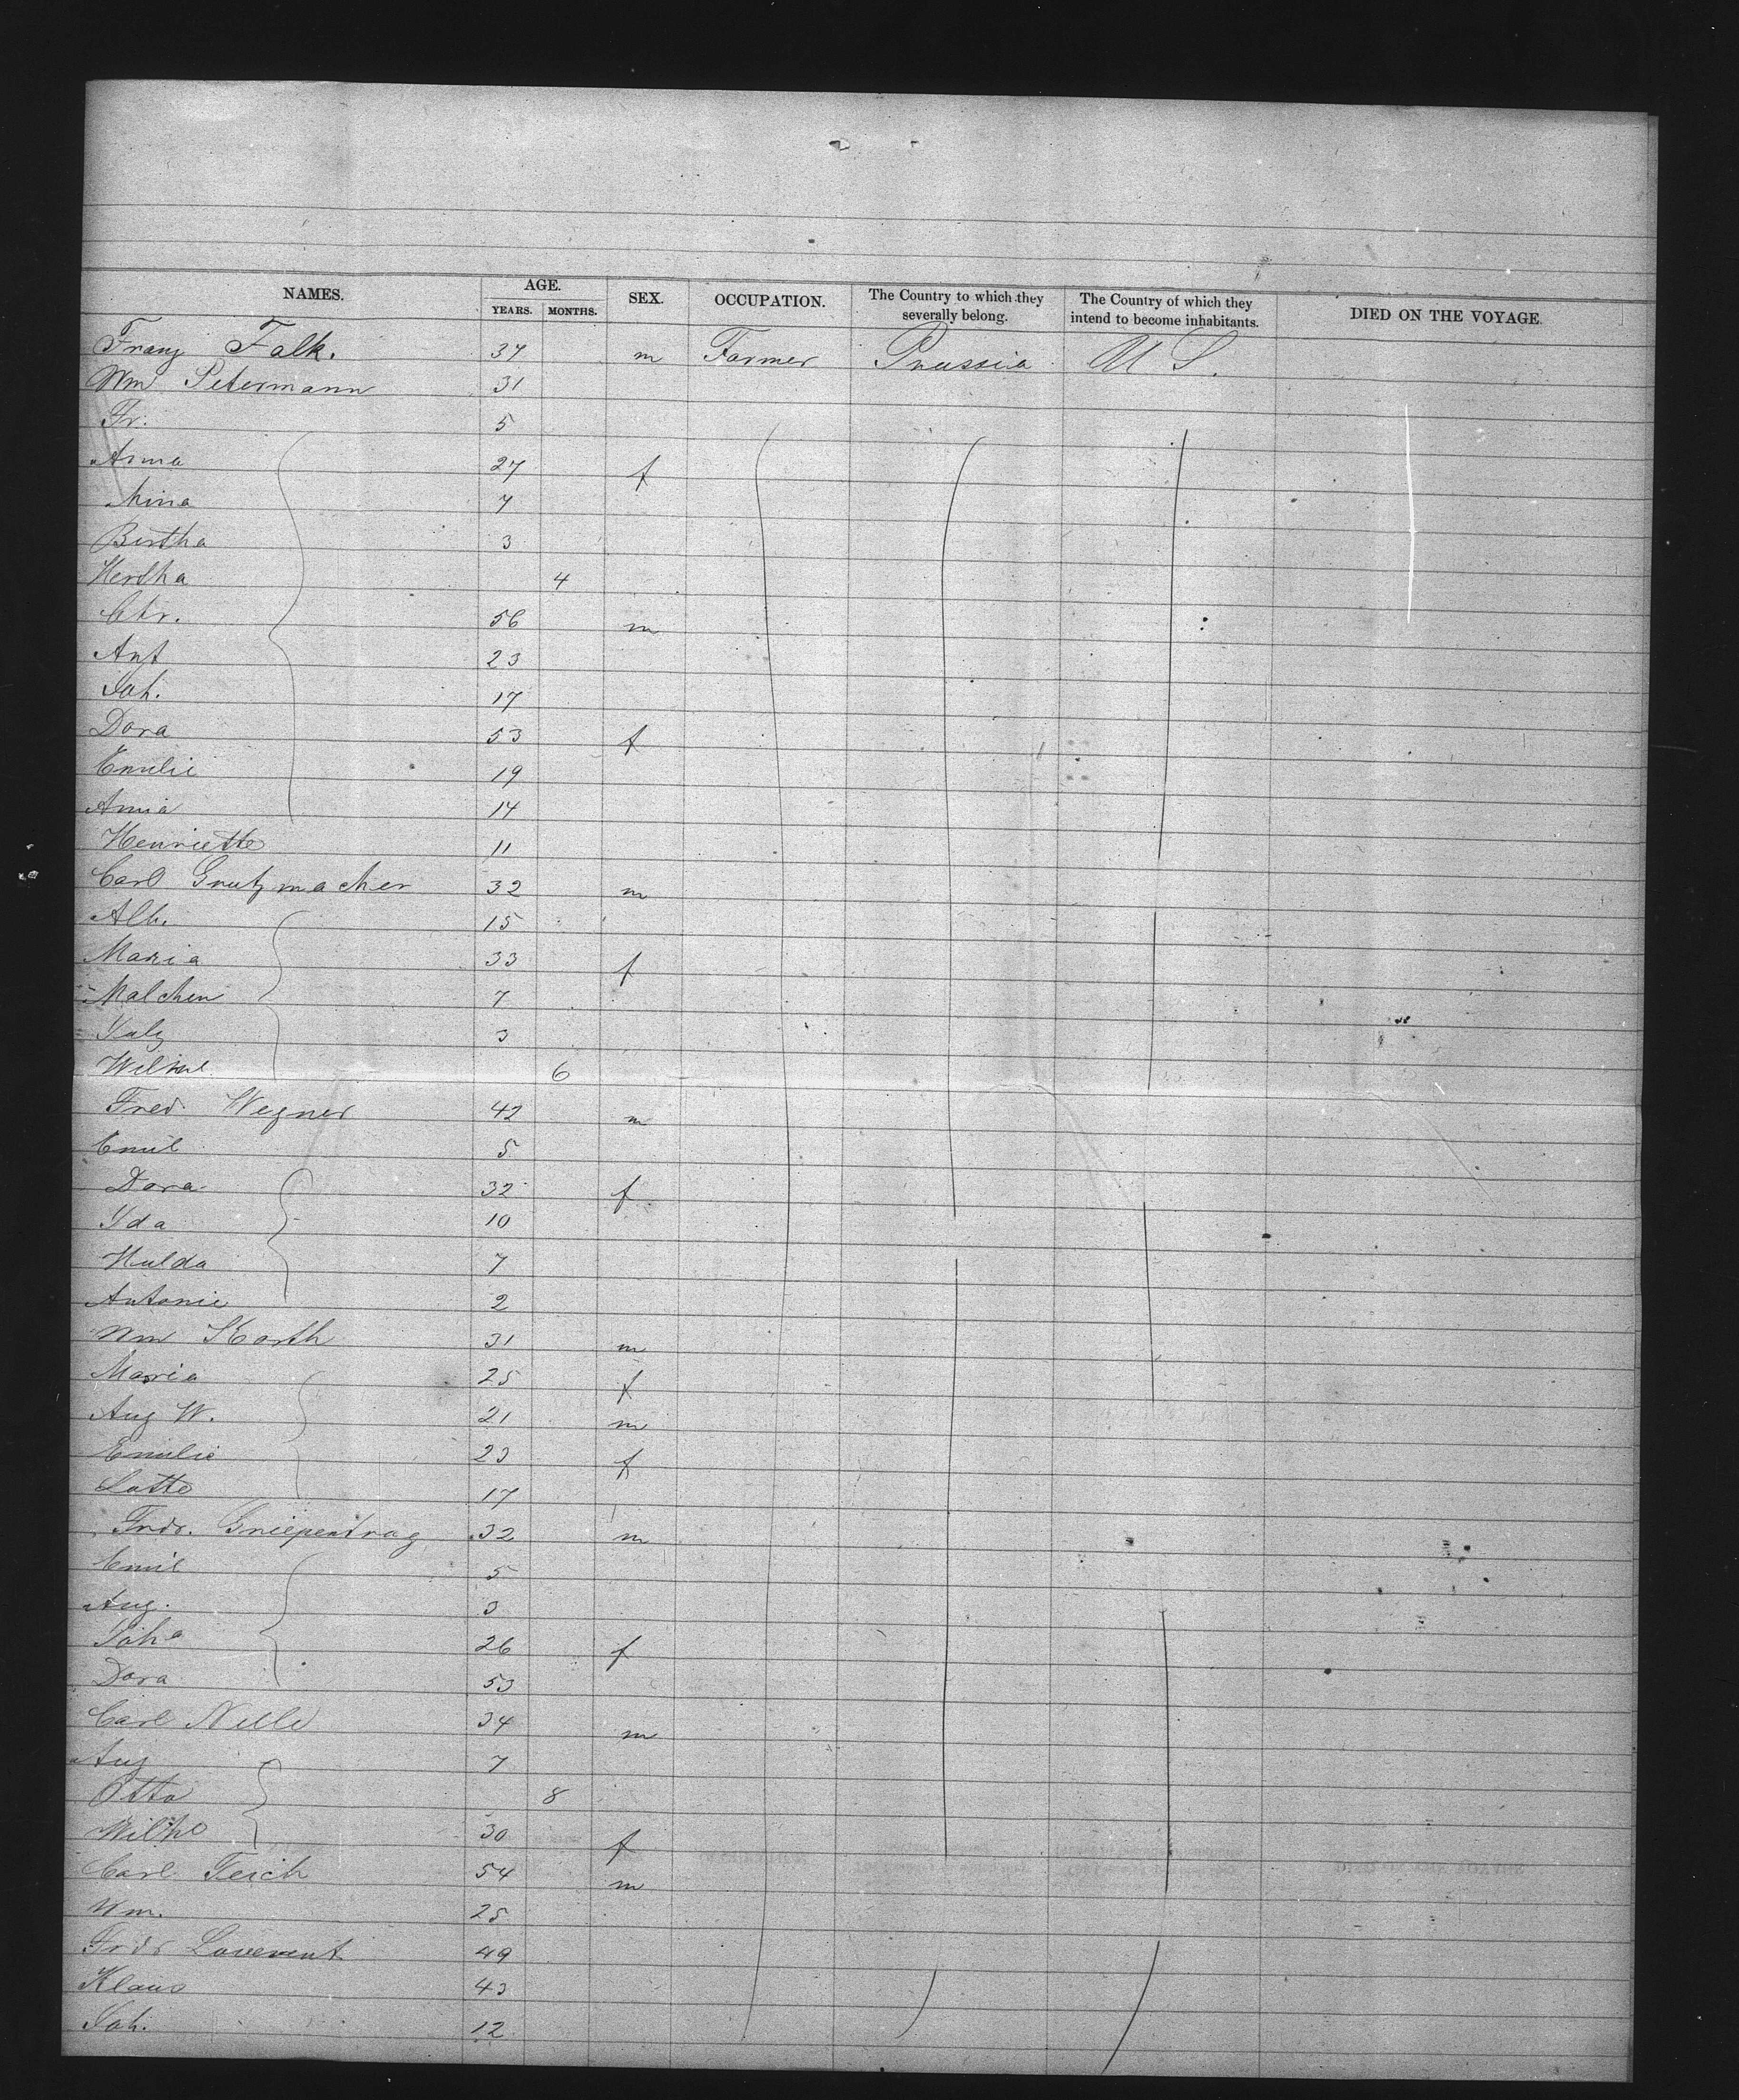 NAMES. AGE. YEARS. MONTHS. SEX. OCCUPATION. The Country to which they severally belong. The Country of which they intend to become inhabitants. DIED ON THE VOYAGE.
Franz Falk. 37 m Farmer Prussia U S.
Wm Petermann 31
Fr. 5
Anna 27 f
Mina 7
Bertha 3
Hertha 4
Chr. 56 m
Ant 23
Joh. 17
Dora 53 f
Emilie 19
Anna 14
Henriette 11
Carl Grutzmacher 32 m
Alb. 15
Maria 33 f
Malchen 7
3
Wilhel 6
Fred Wegner 42 m
Emil 5
Dora 32 f
Ida 10
Hulda 7
Antonie 2
Wm Karth 31 m
Maria 25 f
Aug W. 21 m
Emilie 23 f
Lotte 17
Frdr. Griepentrag 32 m
Emil 5
Aug. 3
Joha 26 f
Dora 53
Carl Nelle 34 m
Aug 7
Otto 8
Wilhe 30 f
Carl Teich 54 m
Wm. 25
Frdr 49
Klaus 43
Joh. 12